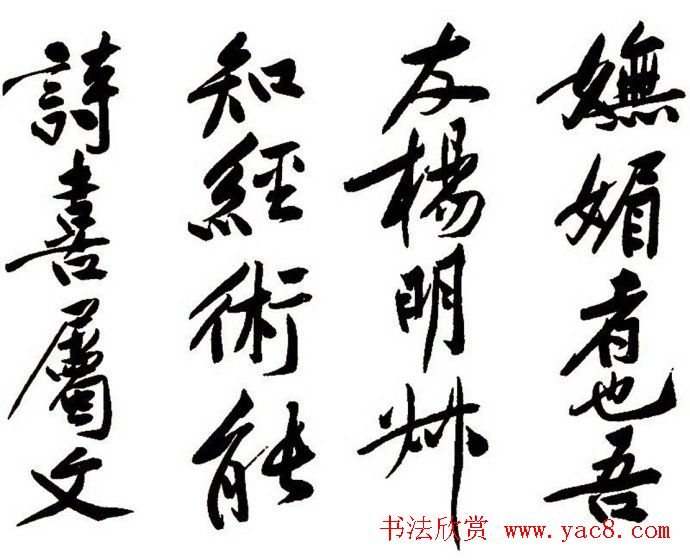 嫵媚者也吾
友楊明叔
知經術能
詩喜屬文
书法欣赏 www.yac8.com